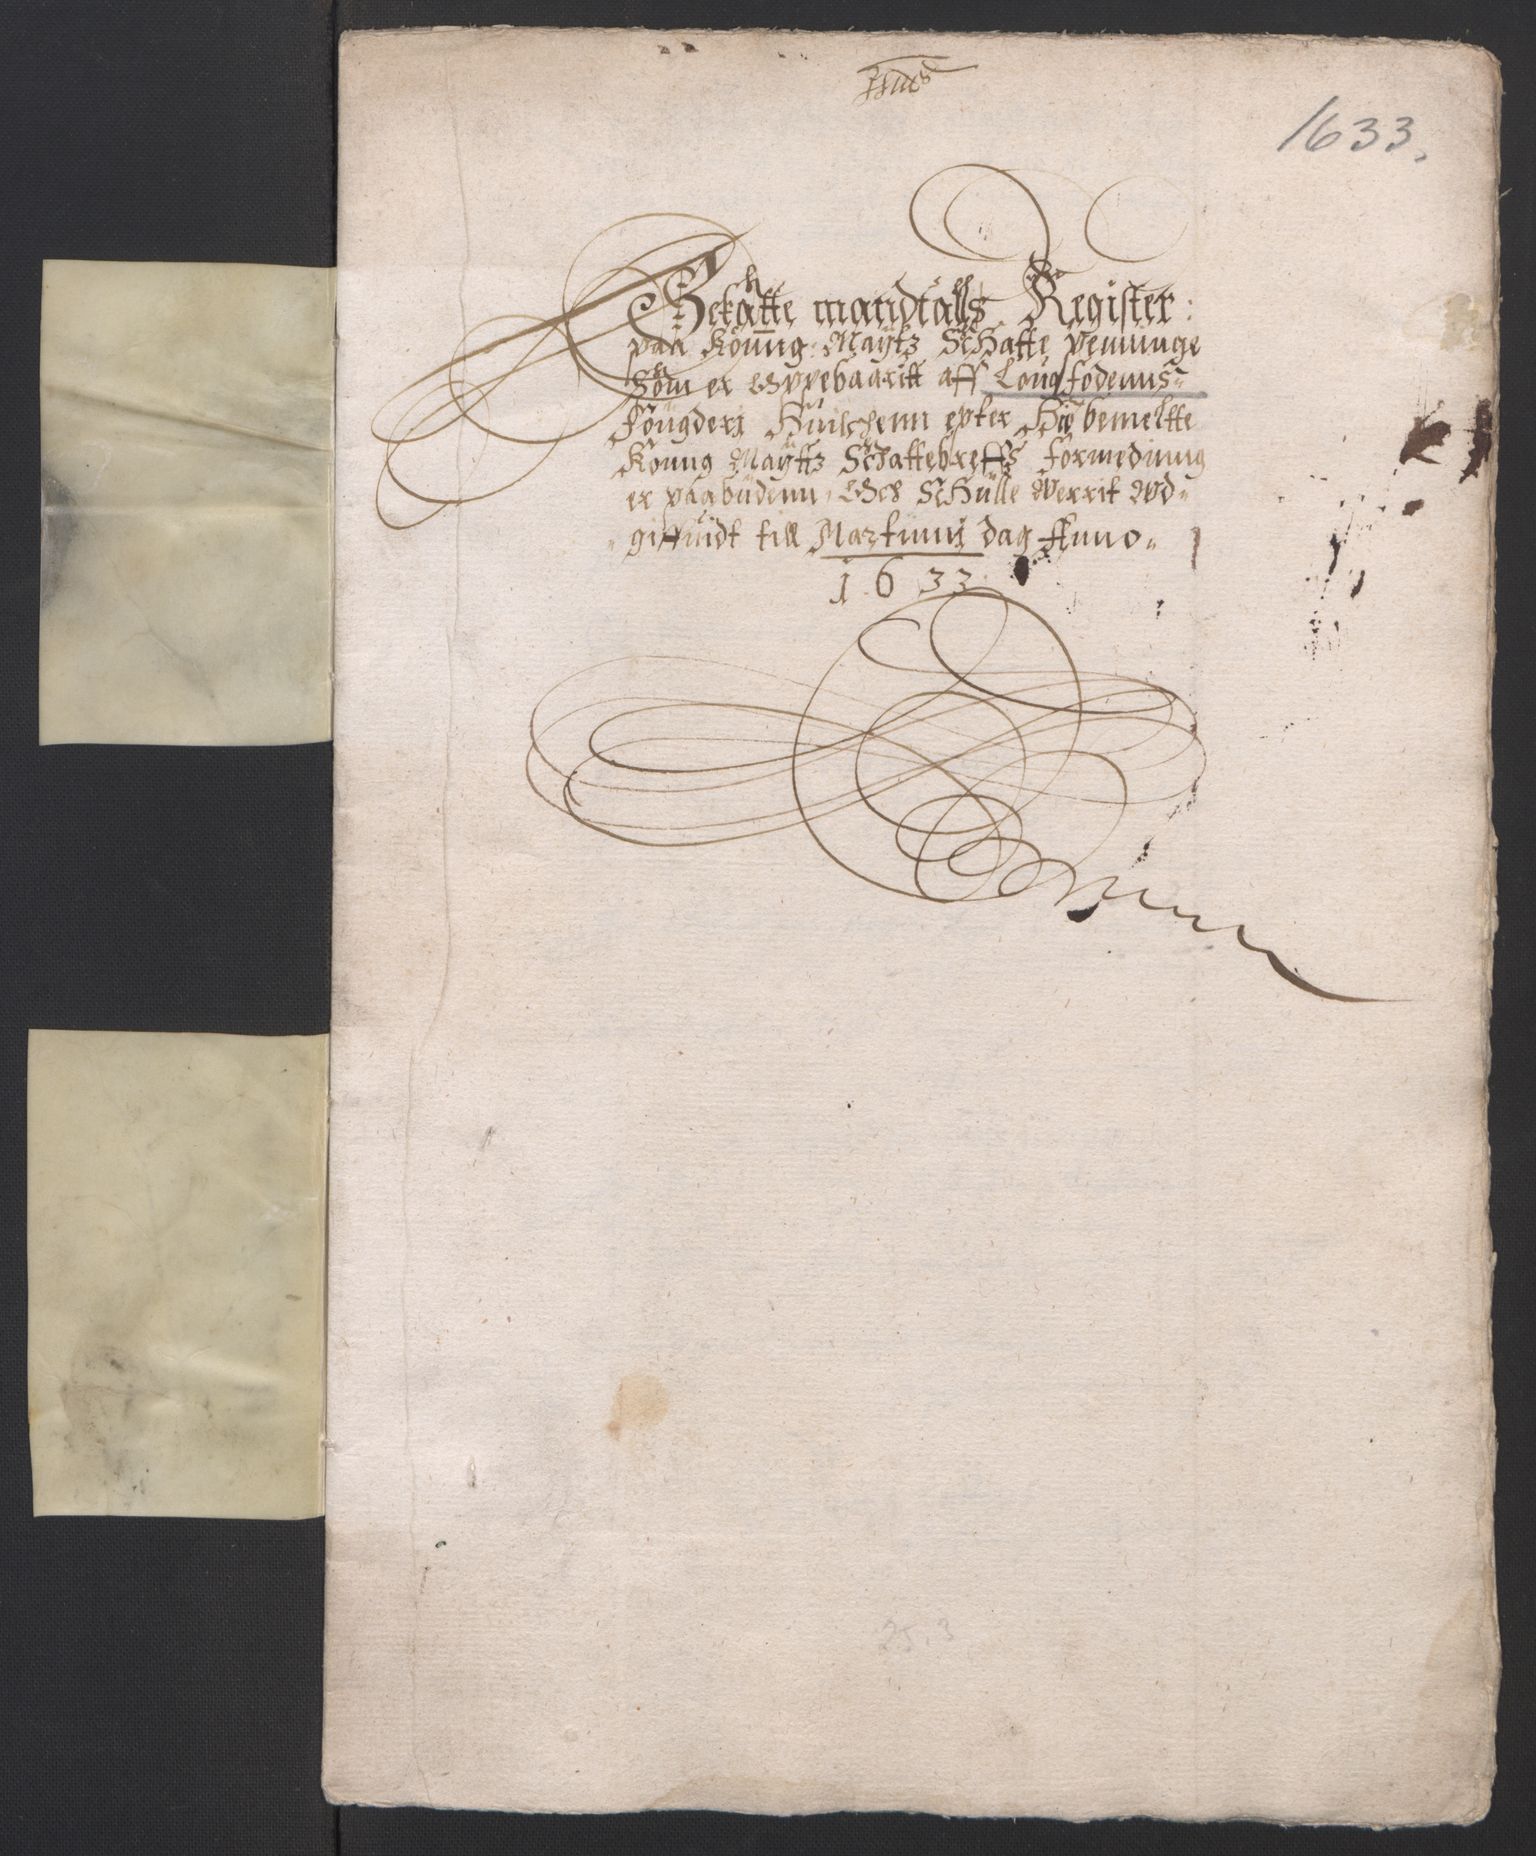 1633.
Schatte mandtalls Register
paa Konng: Maytz Schatte penninge
Som er Oppebaaritt aff Lougfodenns
Fougderj Huilchenn epter Høybemeltte
Konng Mayttz Schattebreffs formedinng
er paabudenn, Och Schulle Werrit Wd-
giffuidt till Martinni dag Anno
1633
25.3